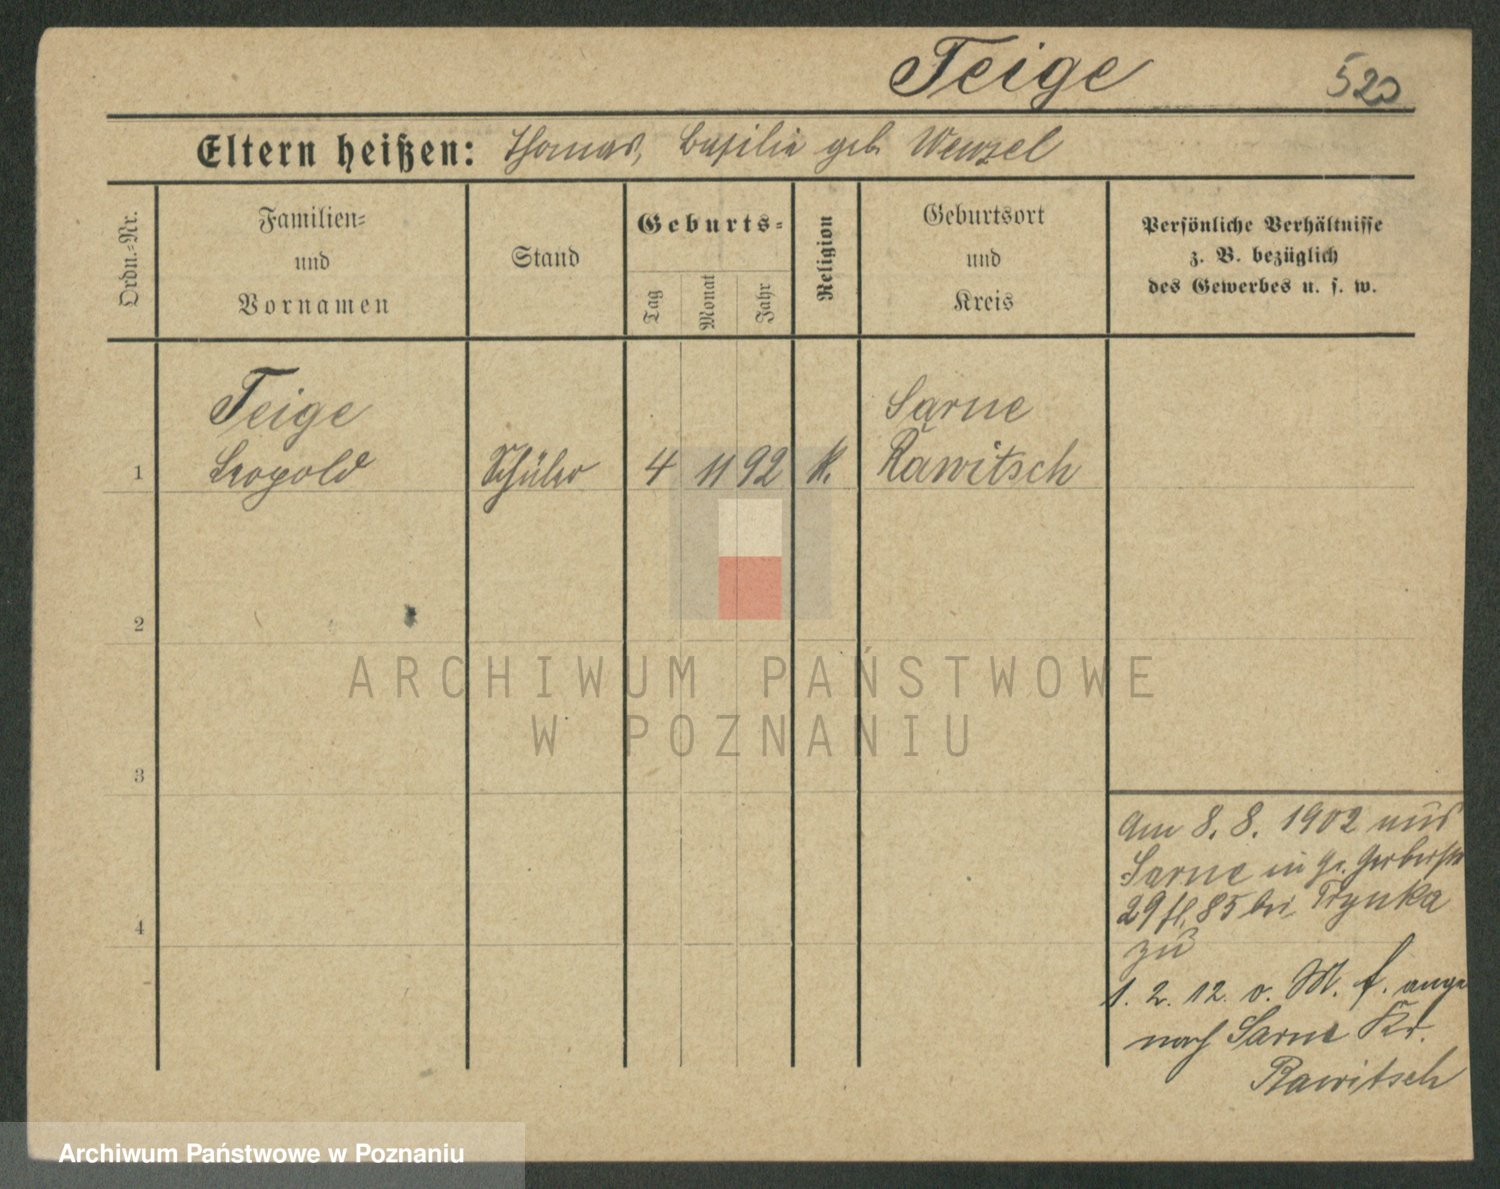 Teige
520
Eltern heißen: Thomas, Basilia geb. Wenzel
Ordn.=Nr.
Familien=
und
Vornamen
Stand
Geburts=
Tag
Monat
Jahr
Religion
Geburtsort
und
Kreis
Persönliche Verhältnisse
z. B. bezüglich
des Gewerbes u. s. w.
1
Teige
Leopold
Schüler
4
11
92
k.
Sarne
Rawitsch
2
3
4
ARCHIWUM PAŃSTWOWE
W POZNANIU
Am 8. 8. 1902 aus
Sarne in Gr. Gerberstr
29 fl. 85 bei Trynka
zu
1. 2. 12. v. M. f. ange
nach Sarne Kr.
Rawitsch
Archiwum Państwowe w Poznaniu